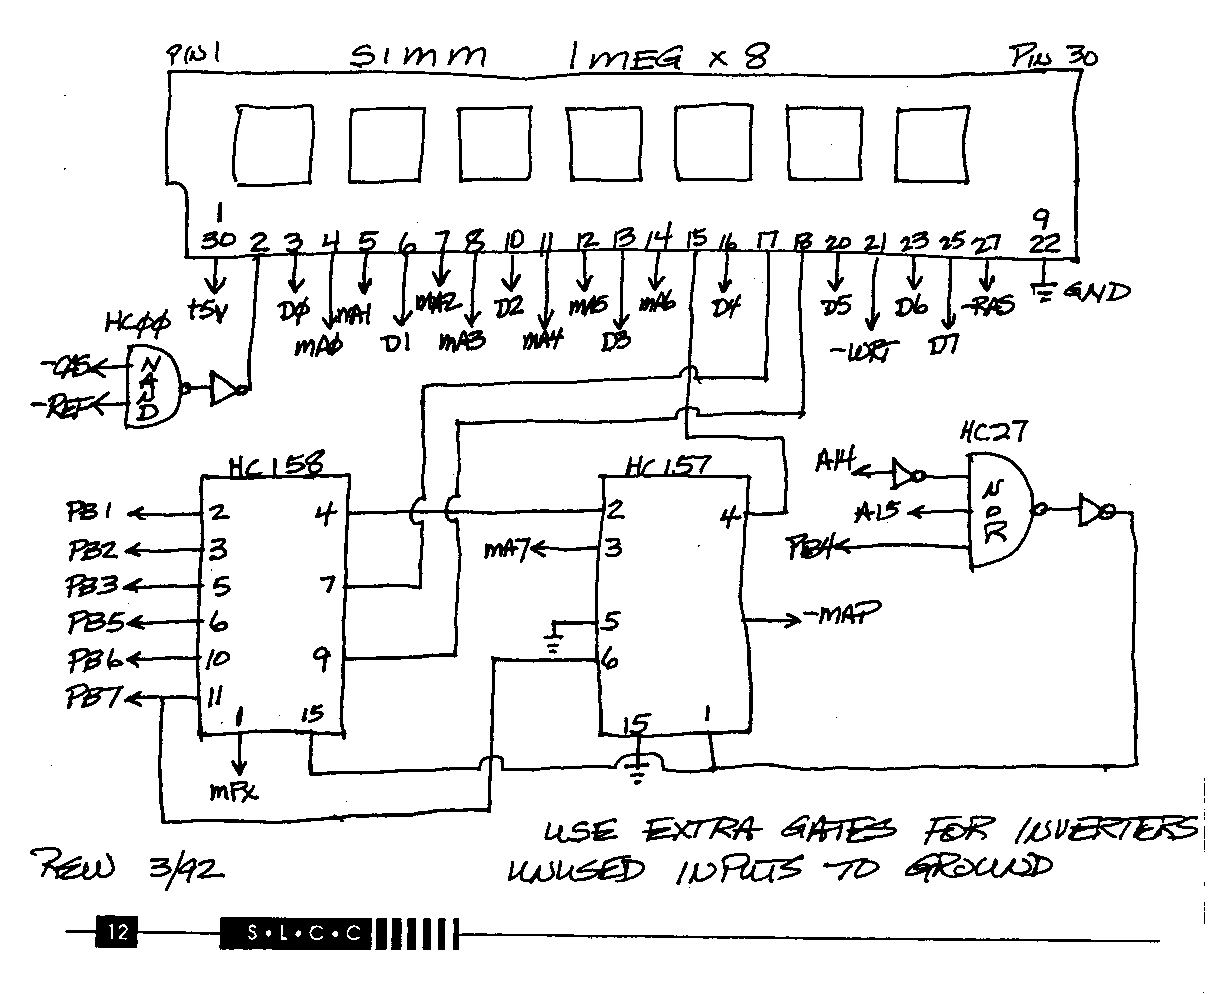 PIN 1 SIMM 1 MEG x 8 PIN 30
1 9
30 2 3 4 5 6 7 8 10 11 12 13 14 15 16 17 18 20 21 23 25 27 22
+5V DØ MA1 MA2 D2 MA5 MA6 D4 D5 D6 -RAS GND
MAØ D1 MA3 MA4 D3 -WRT D7
HCØØ
-CAS
-REF
NAND
HC27
A14
A15
PB4
NOR
HC158
PB1 2 4
PB2 3
PB3 5 7
PB5 6
PB6 10 9
PB7 11
1 15
MPX
HC157
2 4
MA7 3
5 -MAP
6
15 1
USE EXTRA GATES FOR INVERTERS
UNUSED INPUTS TO GROUND
REW 3/92
12 S•L•C•C